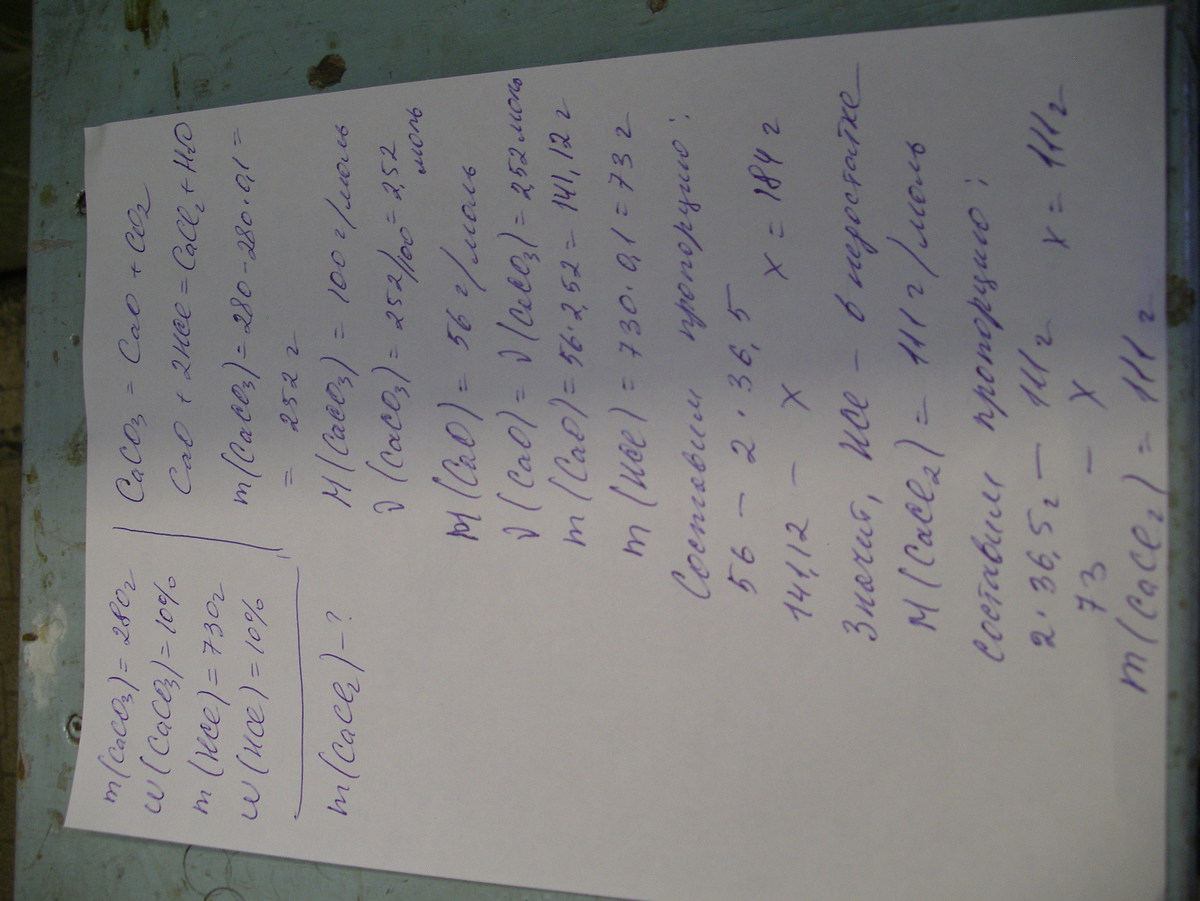 m(CaCO3) = 280г
W(CaCO3) = 10%
m(HCl) = 730г
W(HCl) = 10%
m(CaCl2) - ?
CaCO3 = CaO + CO2
CaO + 2HCl = CaCl2 + H2O
m(CaCO3) = 280 - 280 · 0,1 =
= 252 г
M(CaCO3) = 100 г/моль
ν(CaCO3) = 252/100 = 2,52
моль
M(CaO) = 56 г/моль
ν(CaO) = ν(CaCO3) = 2,52 моль
m(CaO) = 56 · 2,52 = 141,12 г
m(HCl) = 730 · 0,1 = 73 г
Составим пропорцию:
56 - 2 · 36,5
141,12 - x x = 184 г
Значит, HCl - в недостатке
M(CaCl2) = 111 г/моль
составим пропорцию:
2 · 36,5г - 111 г
73 - x x = 111г
m(CaCl2) = 111 г